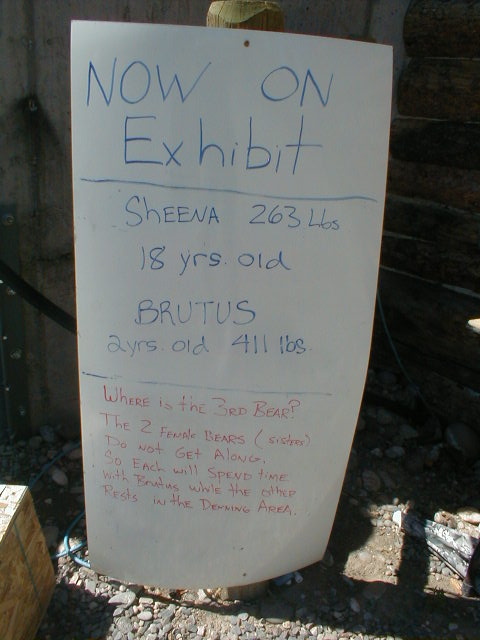 NOW ON
Exhibit
SHEENA 263 Lbs
18 yrs. old
BRUTUS
2yrs. old 411 lbs.
Where is the 3RD BEAR?
The 2 Female BEARS (sisters)
Do not Get Along.
So Each will Spend time
with Brutus while the other
Rests in the Denning Area.